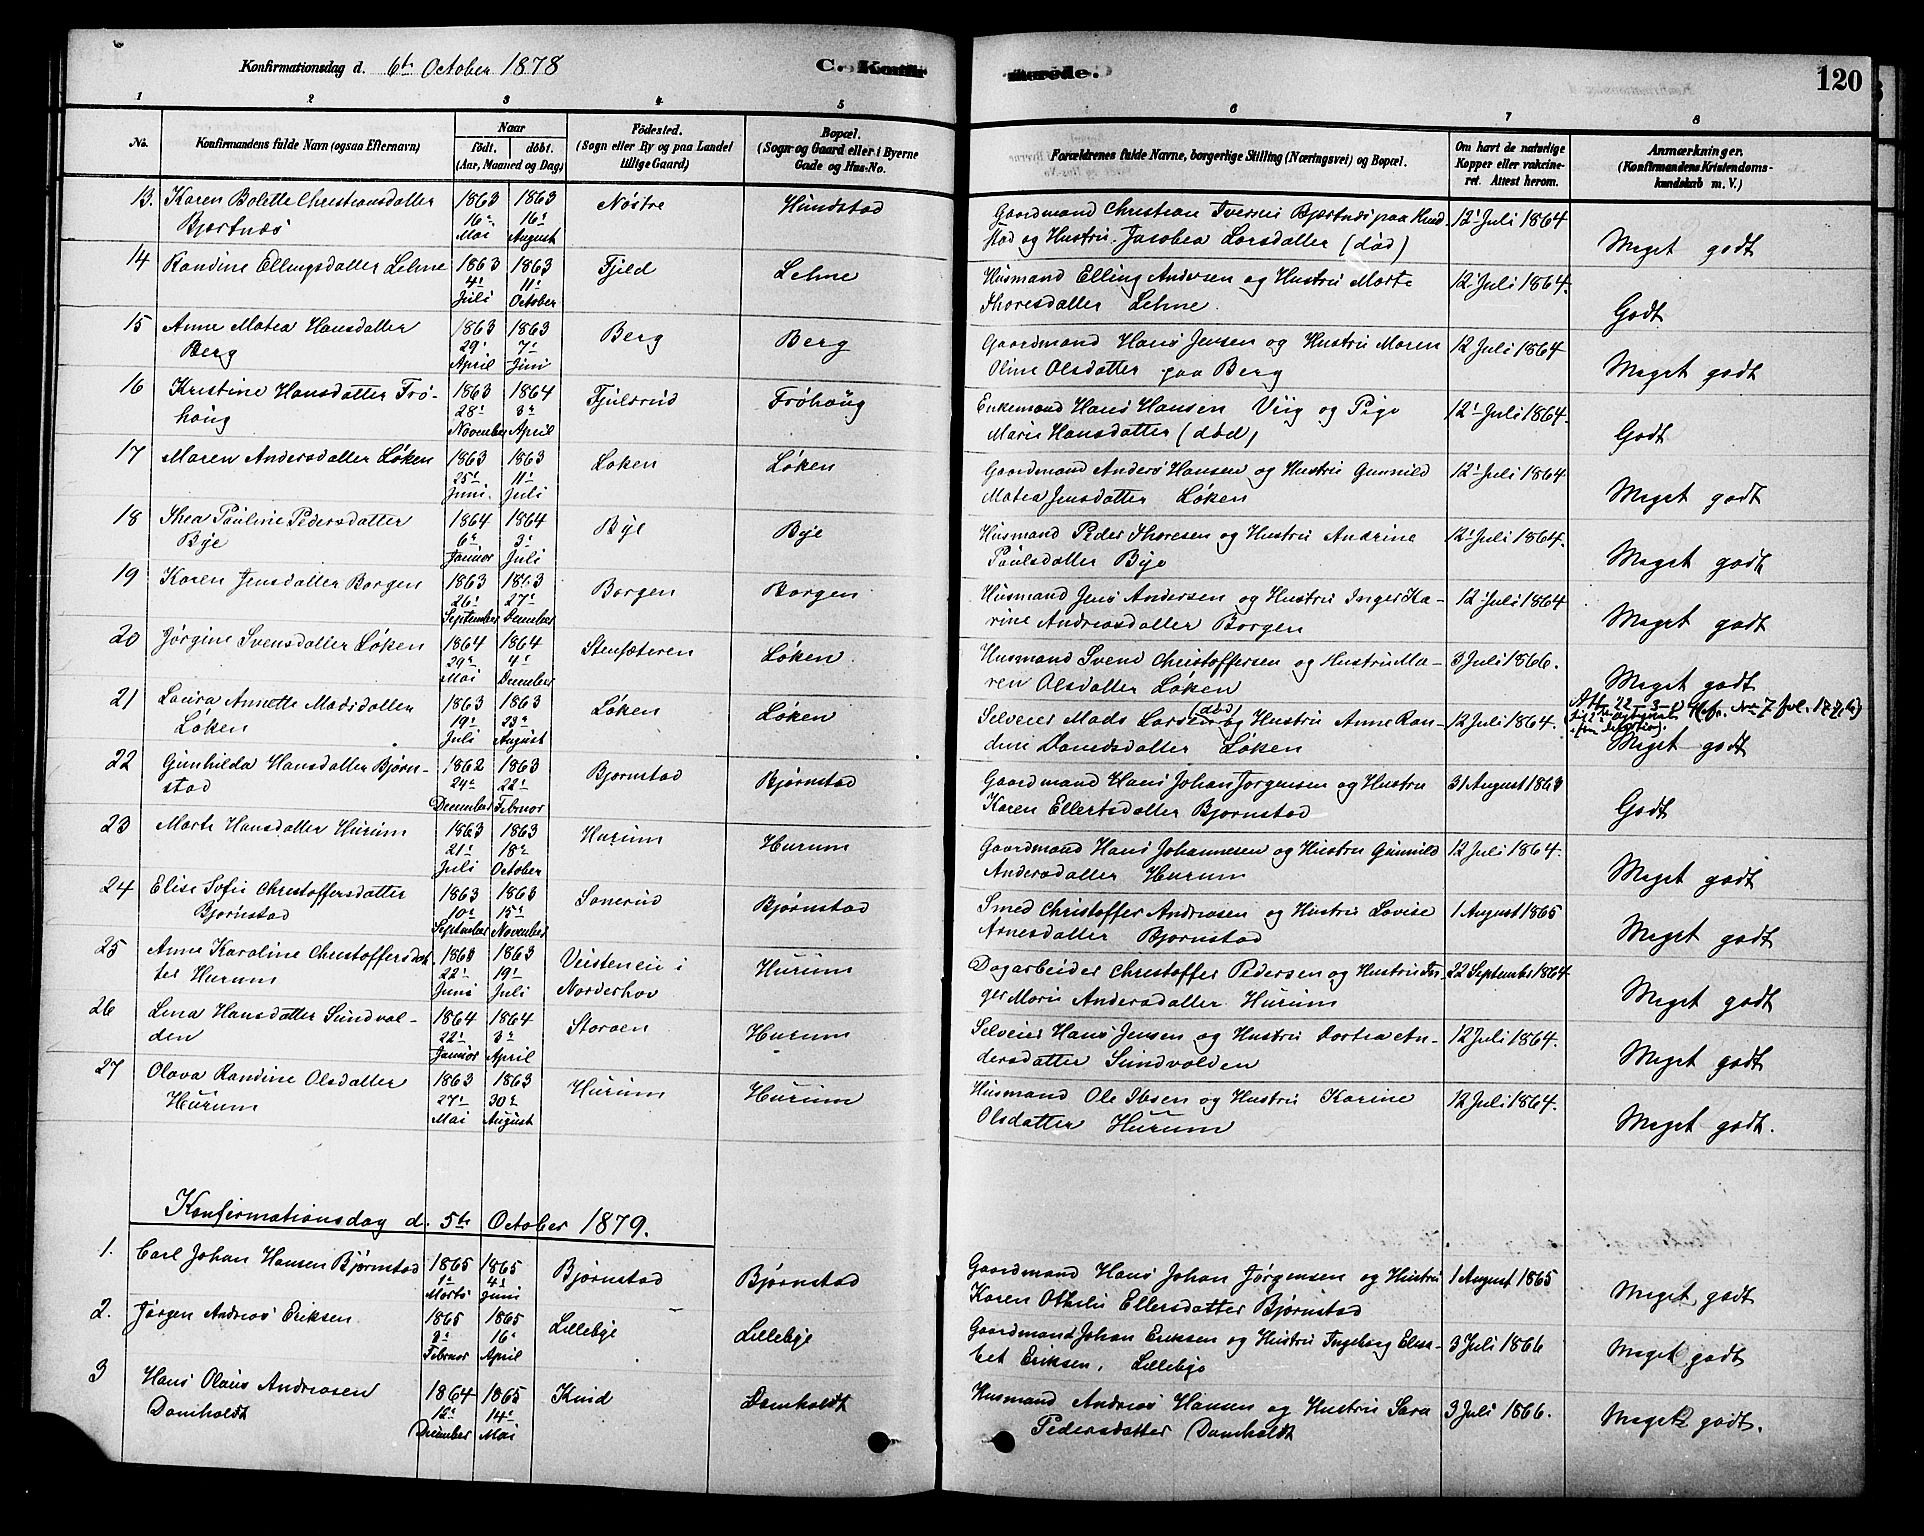 Konfirmationsdag d. 6te October 1878
C. Konfir
merede.
120
1 2 3 4 5 6 7 8
No.
Konfirmandens fulde Navn (ogsaa Efternavn)
Naar
födt. döbt.
(Aar, Maaned og Dag)
Födested.
(Sogn eller By og paa Landet
tillige Gaard)
Bopæl.
(Sogn og Gaard eller i Byerne
Gade og Hus-No.
Forældrenes fulde Navne, borgerlige Stilling (Næringsvei) og Bopæl.
Om havt de naturlige
Kopper eller vakcine-
ret. Attest herom.
Anmærkninger.
(Konfirmandens Kristendoms-
kundskab m. V.)
13. Karen Bolette Christiansdatter 1863 1863 Nöstre Hundstad Gaardmand Christian Iversen Bjærtnæs paa Hund- 12 Juli 1864
Bjertnæs 16 Mai 16 August stad og Hustru Jacobea Larsdatter (död) Meget godt
14 Randine Ellingsdatter Lehne 1863 1863 Fjeld Lehne Husmand Elling Andersen og Hustru Marte 12 Juli 1864.
4 Juli 11 October Thoresdatter Lehne Godt
15 Anne Matea Hansdatter 1863 1863 Berg Berg Gaardmand Hans Jensen og Hustru Maren 12 Juli 1864
Berg 29 April 7 Juni Oline Olsdatter paa Berg Meget godt
16 Kristine Hansdatter Frö- 1863 1864 Fjulsrud Fröhöug Enkemand Hans Hansen Viig og Pige 12 Juli 1864.
haug 28 November 3 April Marie Hansdatter (död) Godt
17 Maren Andersdatter Løken 1863 1863 Loken Løken Gaardmand Anders Hansen og Hustru Gunnild 12 Juli 1864
25 Juni. 11 Juli Matea Jensdatter Løken Meget godt
18 Thea Pauline Pedersdatter 1864 1864 Bye Bye Husmand Peder Thoresen og Hustru Andrine 12 Juli 1864.
Bye 6 Januar 3 Juli Paulsdatter Bye Meget godt
19 Karen Jensdatter Borgen 1863 1863 Borgen Borgen Husmand Jens Andersen og Hustru Inger Ka- 12 Juli 1864
26 September 27 December rine Andreasdatter Borgen Meget godt
20 Jørgine Svensdatter Løken 1864 1864 Stensæteren Løken. Husmand Svend Christoffersen og Hustru Ma- 3 Juli 1866.
29 Mai 4 December ren Olsdatter Løken Meget godt
21 Laura Annette Madsdatter 1863 1863 Løken Løken Selveier Mads Larsen (död) og Hustru Anne Ran- 12 Juli 1864.
Løken 19 Juli 23 August dine Løken Meget godt
22 Gunhilda Hansdatter Bjørn- 1862 1863 Bjornstad Bjørnstad Gaardmand Hans Johan Jorgensen og Hustru 31 August 1863
stad 24 December 22 Februar Karen Ellertsdatter Bjornstad Godt
23 Marte Hansdatter Hurum 1863 1863 Hurum Hurum Gaardmand Hans Johannesen og Hustru Gunnild 12 Juli 1864.
21 Juli 18 October Andersdatter Hurum Meget godt
24 Elise Sofie Christoffersdatter 1863 1863 Sonerud Bjørnstad Smed Christoffer Andreasen og Hustru Lovise 1 August 1865
Bjørnstad 10 September 15 November Arnesdatter Bjornstad Meget godt
25 Anne Karoline Christoffersdat- 1863 1863 Veisteneie i Hurum Dagarbeider Christoffer Pedersen og Hustru In- 22 September 1864
ter Hurum 22 Juni 19 Juli Norderhov ger Marie Andersdatter Hurum Meget godt
26 Lena Hansdatter Sundvol- 1864 1864 Storoen Hurum Selveier Hans Jensen og Hustru Dortea An- 12 Juli 1864.
den 22 Januar 3 April dersdatter Sundvolden Meget godt
27 Olava Randine Olsdatter 1863 1863 Hurum Hurum Husmand Ole Ibsen og Hustru Karine 12 Juli 1864.
Hurum 27 Mai 30 August Olsdatter Hurum Meget godt.
Konfirmationsdag d. 5te October 1879.
1. Carl Johan Hansen Bjørnstad 1865 1865 Bjørnstad Bjørnstad Gaardmand Hans Johan Jørgensen og Hustru 1 August 1865
1 Marts 4 Juni Karen Othelie Ellersdatter Bjørnstad Meget godt
2. Jørgen Andreas Eriksen 1865 1865 Lillebye Lillebye Gaardmand Johan Eriksen og Hustru Ingeborg Elisa- 3 Juli 1866
Februar 16 April bet Eriksen. Lillebye Meget godt
3 Hans Olaus Andreasen 1864 1865 Kund Domholdt Husmand Andreas Hansen og Hustru Sara 3 Juli 1866.
Domholdt 12 December 14 Mai Pedersdatter Domholdt Meget godt.